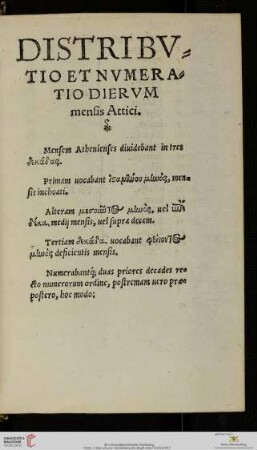 DISTRIBV-
TIO ET NVMERA-
TIO DIERVM
mensis Attici.
Mensem Athenienses diuidebant in tres
δεκάδας.
Primam uocabant ἱσαμένου μίωὸς, men-
sis inchoati.
Alteram μεσοῦντος μίωὸς, uel ἐπὶ
δέκα, medij mensis, uel supra decem.
Tertiam δεκάδα uocabant φθίνοντος
μίωὸς deficientis mensis.
Numerabantq́; duas priores decades re-
cto numerorum ordine, postremam uero præ-
postero, hoc modo;